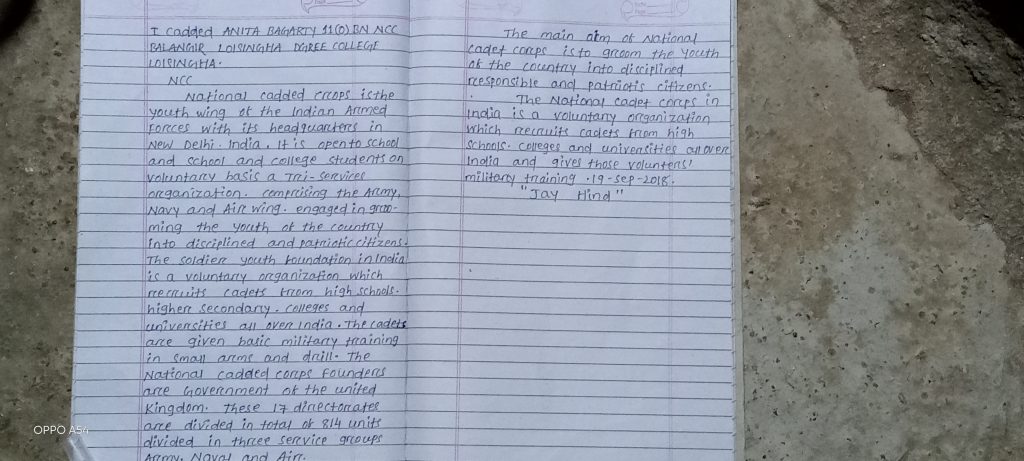 I cadded ANITA BAGARTY 11(O) BN NCC
BALANGIR LOISINGHA DGREE COLLEGE
LOISINGHA.
NCC
National cadded crops is the
youth wing of the Indian Armed
Forces with its headquarters in
New Delhi. India. It is open to school
and school and college students on
voluntary basis a Tri-services
organization. comprising the Army,
Navy and Air wing. engaged in groo-
ming the youth of the country
into disciplined and patriotic citizens.
The soldier youth foundation in India
is a voluntary organization which
recruits cadets from high schools.
higher secondary. colleges and
universities all over India. The cadets
are given basic military training
in small arms and drill. The
National cadded corps Founders
are Government of the united
Kingdom. These 17 directorates
are divided in total of 814 units
divided in three service groups
Army, Naval and Air.
The main aim of National
cadet corps is to groom the youth
of the country into disciplined
responsible and patriotis citizens.
The National cadet corps in
India is a voluntary organization
which recruits cadets from high
schools. colleges and universities all over
India and gives those volunters'
military training. 19-sep-2018.
"Jay Hind"
OPPO A54